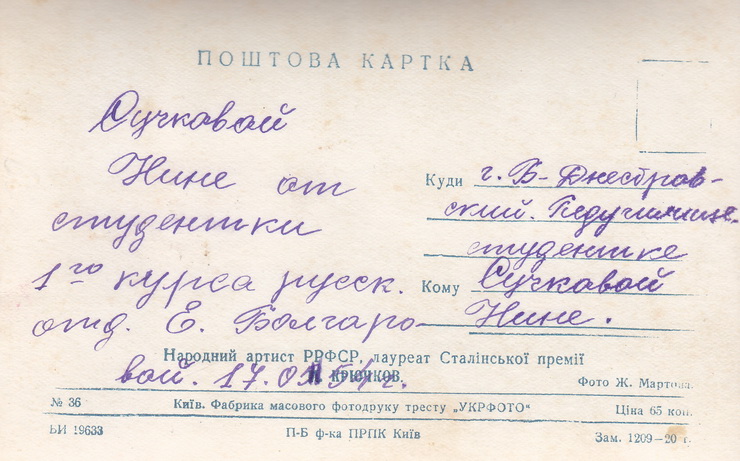 ПОШТОВА КАРТКА
Сучкавай
Нине от
студентки
1го курса русск.
отд. Е. Болгаро-
вой. 17.
Куди г. Б-Днестров-
ский. Педучилище.
студентке
Кому Сучкавай
Нине.
Народний артист РРФСР, лауреат Сталінської премії
КРЮЧКОВ.
Фото Ж. Мартова
№ 36 Київ. Фабрика масового фотодруку тресту „УКРФОТО“ Ціна 65 коп.
БИ 19633 П-Б ф-ка ПРПК Київ Зам. 1209—20 г.